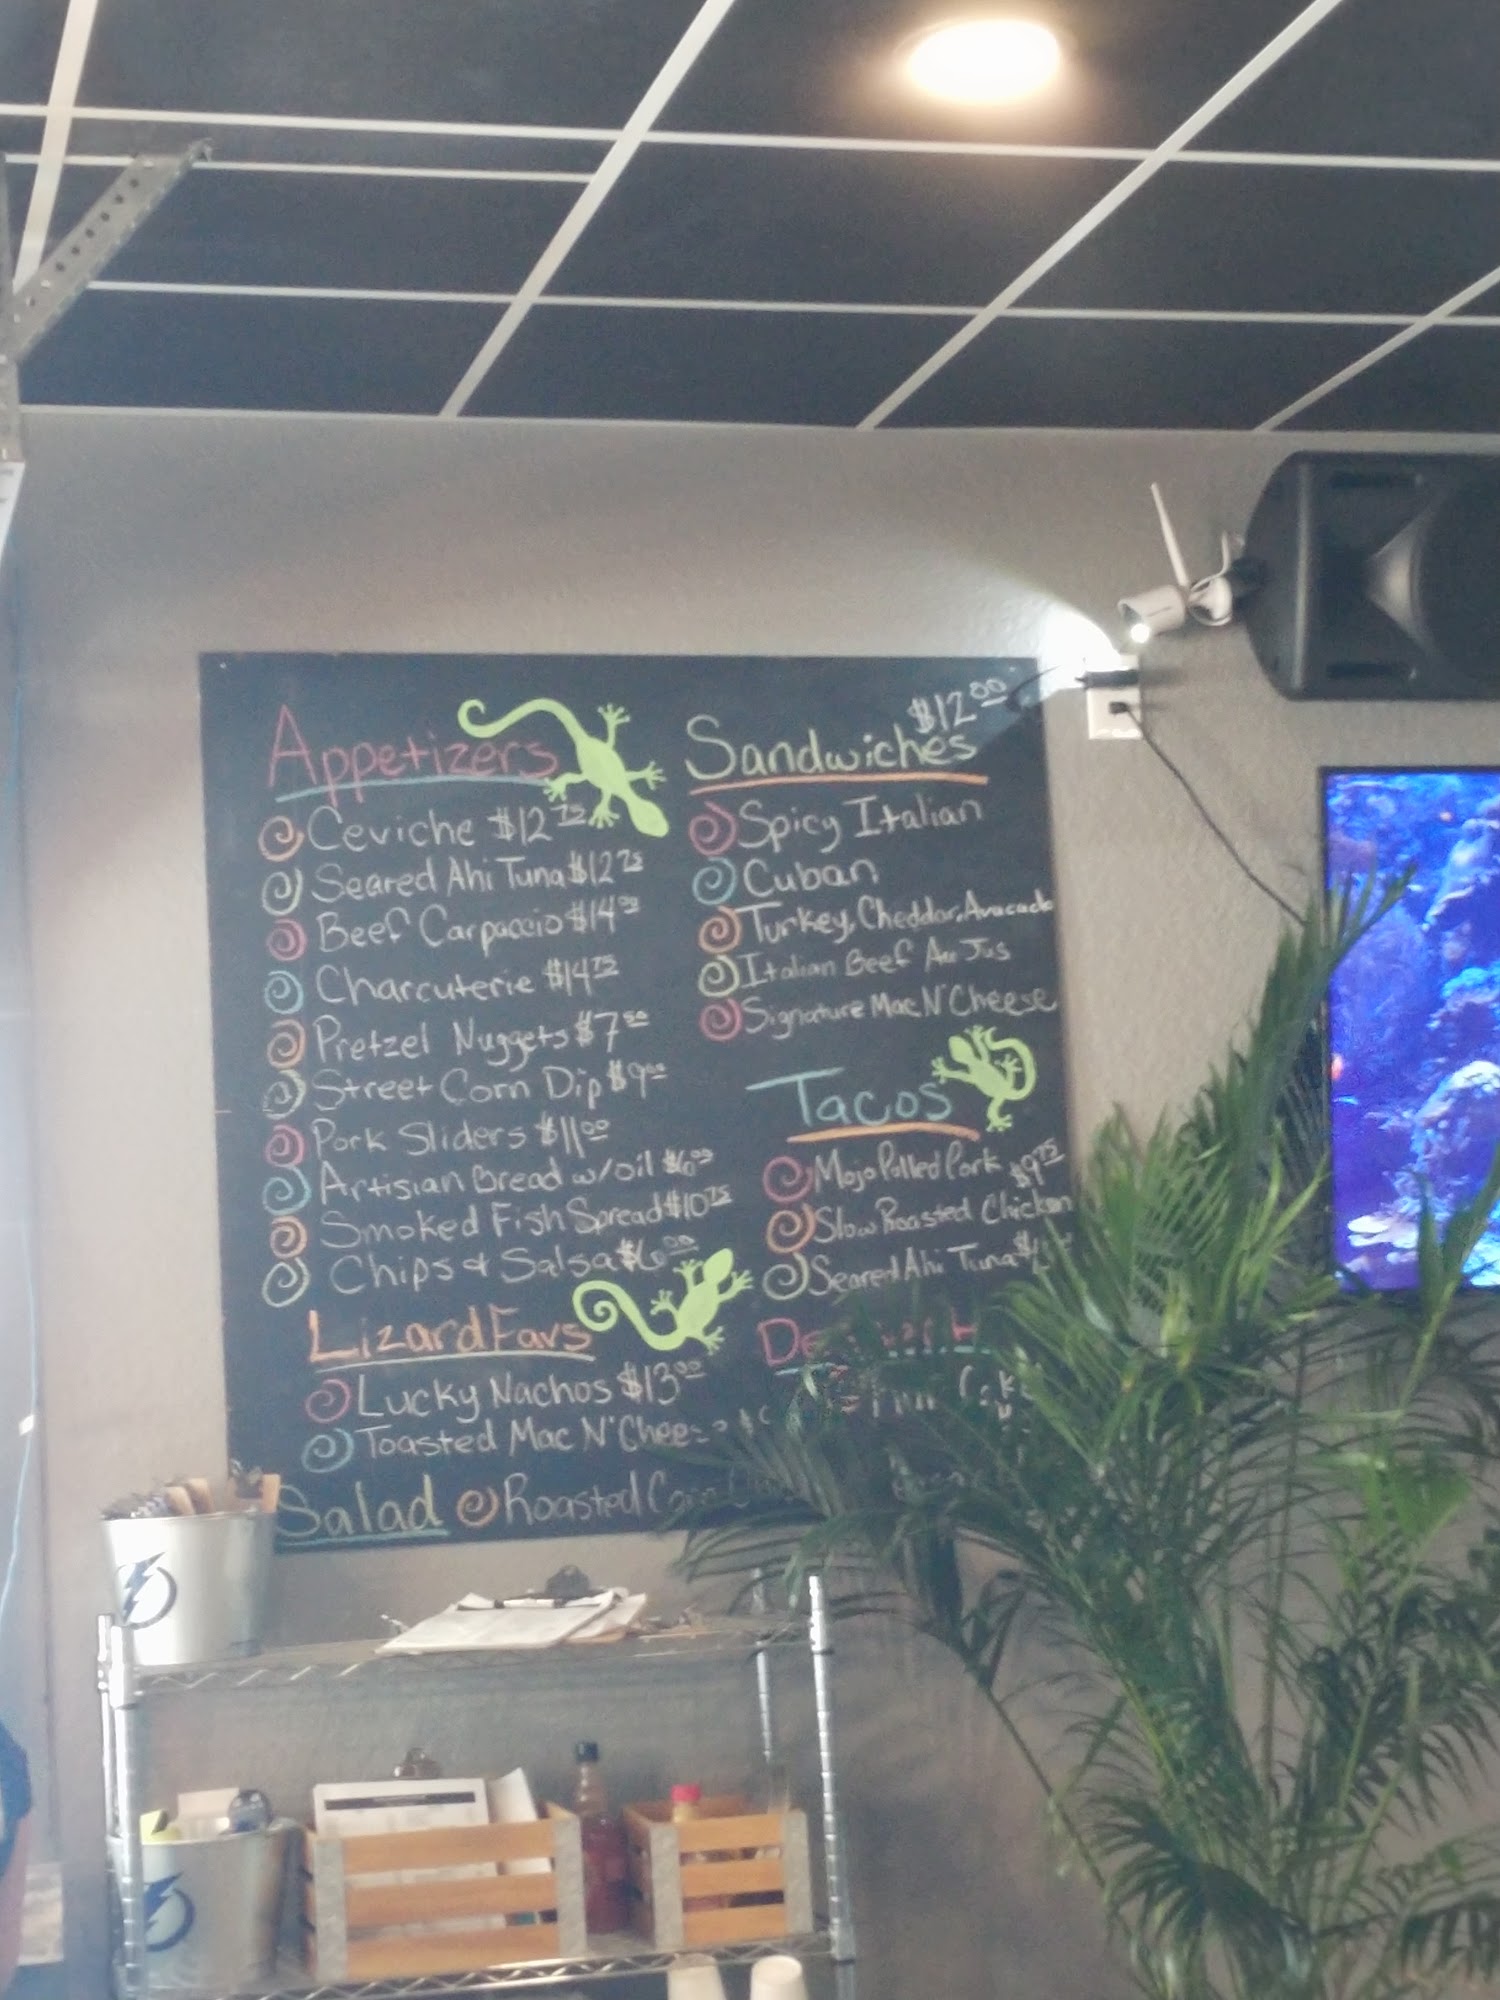 Appetizers
Ceviche $12.75
Seared Ahi Tuna $12.75
Beef Carpaccio $14.00
Charcuterie $14.75
Pretzel Nuggets $7.50
Street Corn Dip $9.00
Pork Sliders $11.00
Artisian Bread w/oil $6.00
Smoked Fish Spread $10.75
Chips & Salsa $6.00
Lizard Favs
Lucky Nachos $13.00
Toasted Mac N' Cheese
Salad Roasted Corn
Sandwiches $12.00
Spicy Italian
Cuban
Turkey, Cheddar, Avacado
Italian Beef Au Jus
Signature Mac N' Cheese
Tacos
Mojo Pulled Pork $9.75
Slow Roasted Chicken
Seared Ahi Tuna